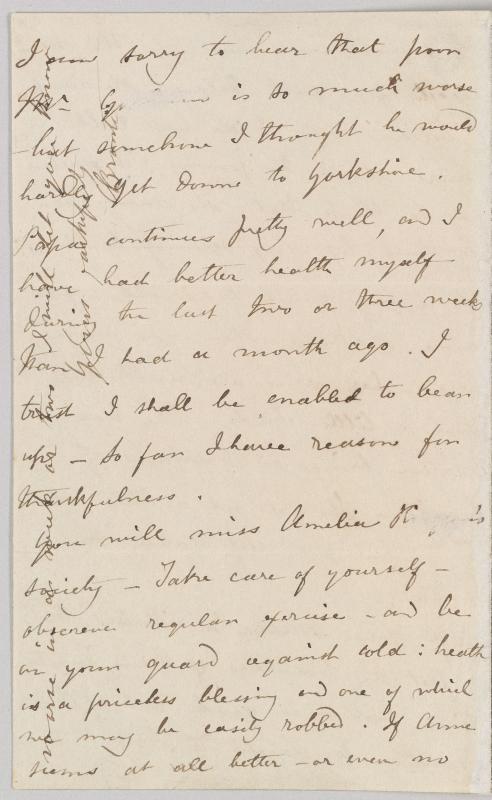 I am sorry to hear that poor
Mr. G is so much worse
- but somehow I thought he would
hardly get down to Yorkshire.
Papa continues pretty well, and I
have had better health myself
during the last two or three weeks
than I had a month ago. I
trust I shall be enabled to bear
up - so far I have reason for
thankfulness.
You will miss Amelia R 's
society - Take care of yourself -
observe regular exercise - and be
on your guard against cold: health
is a priceless blessing and one of which
we may be easily robbed. If Anne
seems at all better - or even no
worse in a week or two I will
Yours faithfully
C Brontë